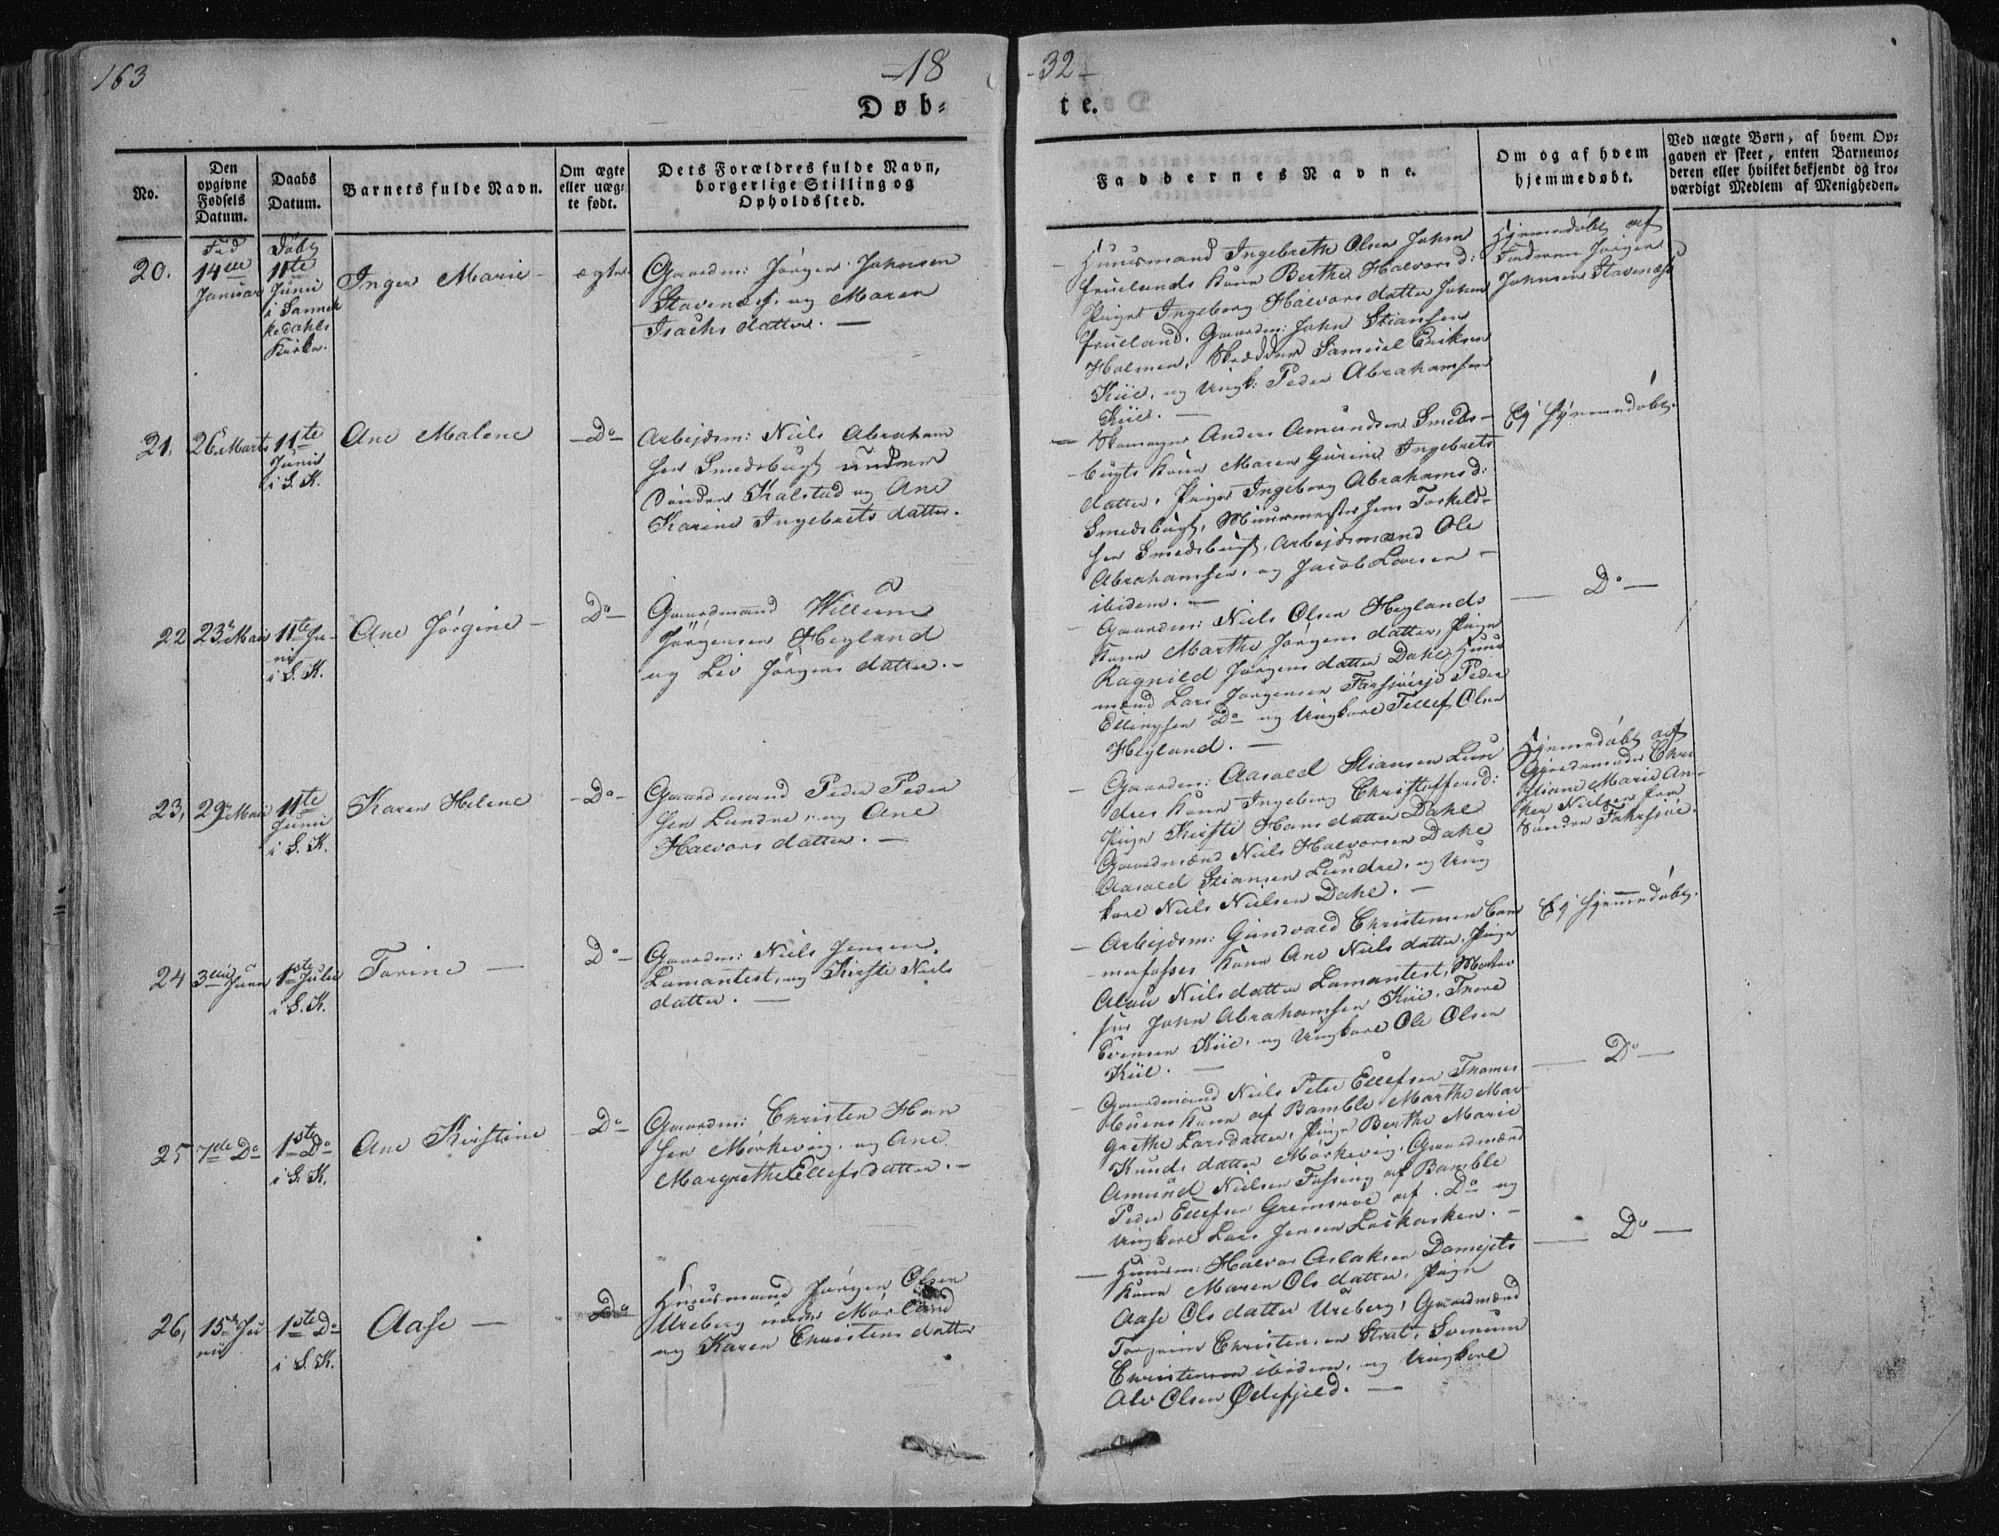 163
-18
-32-
Døb-
te.
No.
Den opgivne Fødsels Datum.
Daabs Datum.
Barnets fulde Navn.
Om ægte eller uæg-te født.
Dets Forældres fulde Navn, borgerlige Stilling og Opholdssted.
Faddernes Navne.
Om og af hvem hjemmedøbt.
Ved uægte Børn, af hvem Op-
gaven er skeet, enten Barnemo-
deren eller hvilket bekjendt og tro-
værdigt Medlem af Menigheden.
20.
Fød
14de
Januar
Døbt
11te
Junii
i Sannik
kedahls
Kirke.
Inger Marie -
ægte
Gaardm: Jørgen Johnsen
Stavenæs, og Maren
Isachsdatter. -
- Huusmand Ingebreth Olsen John
fruelands Kone Berthe Halvorsd:
Pige Ingeborg Halvorsdatter John
frueland, Gaardm: John Stiansen
Holmen, Skrædder Samuel Eriksen
Kiil, og Ungk: Peder Abrahamsen
Kiil. -
Hjemmedøbt af
Faderen Jørgen
Johnsen Stavenæs
21.
26 Marts
11te
Junii
i S. K.
Ane Malene
- Do -
Arbejdsm: Niels Abraham
sen Smedsbugt under
Søndre Kalstad og Ane
Karine Ingebretsdatter.
- Skomager Anders Amundsen Smeds-
bugts Kone Maren Gurine Ingebrets
datter, Pige Ingeborg Abrahamsd:
Smedsbugt, Muurmester Jens Torkild-
sen Smedsbugt, Arbejdsmand Ole
Abrahamsen, og Jacob Larsen -
ibidem. -
Ej hjemmedøbt.
22
23 Maii
11te Ju-
nii
i S. K.
Ane Jørgine -
Do -
Gaardmand Willum
Jørgensen Hegland
og Liv Jørgensdatter. -
- Gaardm: Niels Olsen Heglands
Kone Marthe Jørgensdatter, Pige
Ragnild Jørgensdatter Dahl, Huus
mand Lars Jørgensen Farsjøerø Peder
Ellingsen Do og Ungkarl Tellef Olsen
Hegland. -
- Do -
23,
29 Maii
11te
Junii
i S. K.
Karen Helene
- Do -
Gaardmand Peder Peder
sen Lundre, og Ane
Halvorsdatter. -
- Gaardm: Aasold Stiansen Lun
dres Kone Ingeborg Christoffersd:
Pige Kirsti Hansdatter Dahl
Gaardmænd Niels Halvorsen Dahl
Aasold Stiansen Lundre, og Ung
karl Niels Nielsen Dahl. -
Hjemmedøbt af
Gjordemoder Chri
stiane Marie An-
ker Nielsen fra
Søndre Fahrsjøe.
24
3die Junii
1ste Julii
i S. K.
Torine -
Do -
Gaardm: Niels Jensen
Lomantest, og Kirsti Niels
datter. -
- Arbejdsm: Gundvald Christensen Com
merfosses Kone Ane Nielsdatter, Pige
Olau Nielsdatter Lomantest,
John Abrahamsen Kiil, Thore
Evensen Kiil, og Ungkarl Ole Olsen
Kiil. -
Ej hjemmedøbt.
25
7de Do
1ste Do
i S. K.
Ane Kirstine
- Do -
Gaardm: Christen Han
sen Mørkevig, og Ane
Margrethe Ellefsdatter. -
- Gaardmand Niels Peter Ellefsen Thomes
Huus Kone af Bamble Marthe Mar-
grethe Larsdatter, Pige Berthe Marie
Knudsdatter Mørkevig, Gaardmænd
Amund Nielsen Fossing af Bamble
Peder Ellefsen Gromsroe af Do og
Ungkarl Lars Jensen Løkhasken. -
- Do -
26,
15de Ju
nii
1ste Do
i S. K.
Aase -
Do
Huusmand Jørgen Olsen
Ureberg under Mørland
og Karen Christensdatter
- Huusm: Halvor Aslaksen Damejets
Kone Maren Olsdatter, Pige
Aase Olsdatter Ureberg, Gaardmænd
Torgrim Christensen Strat, Svenum
Christensen ibidem, og Ungkarl
Alv Olsen Ødefjeld. -
- Do -